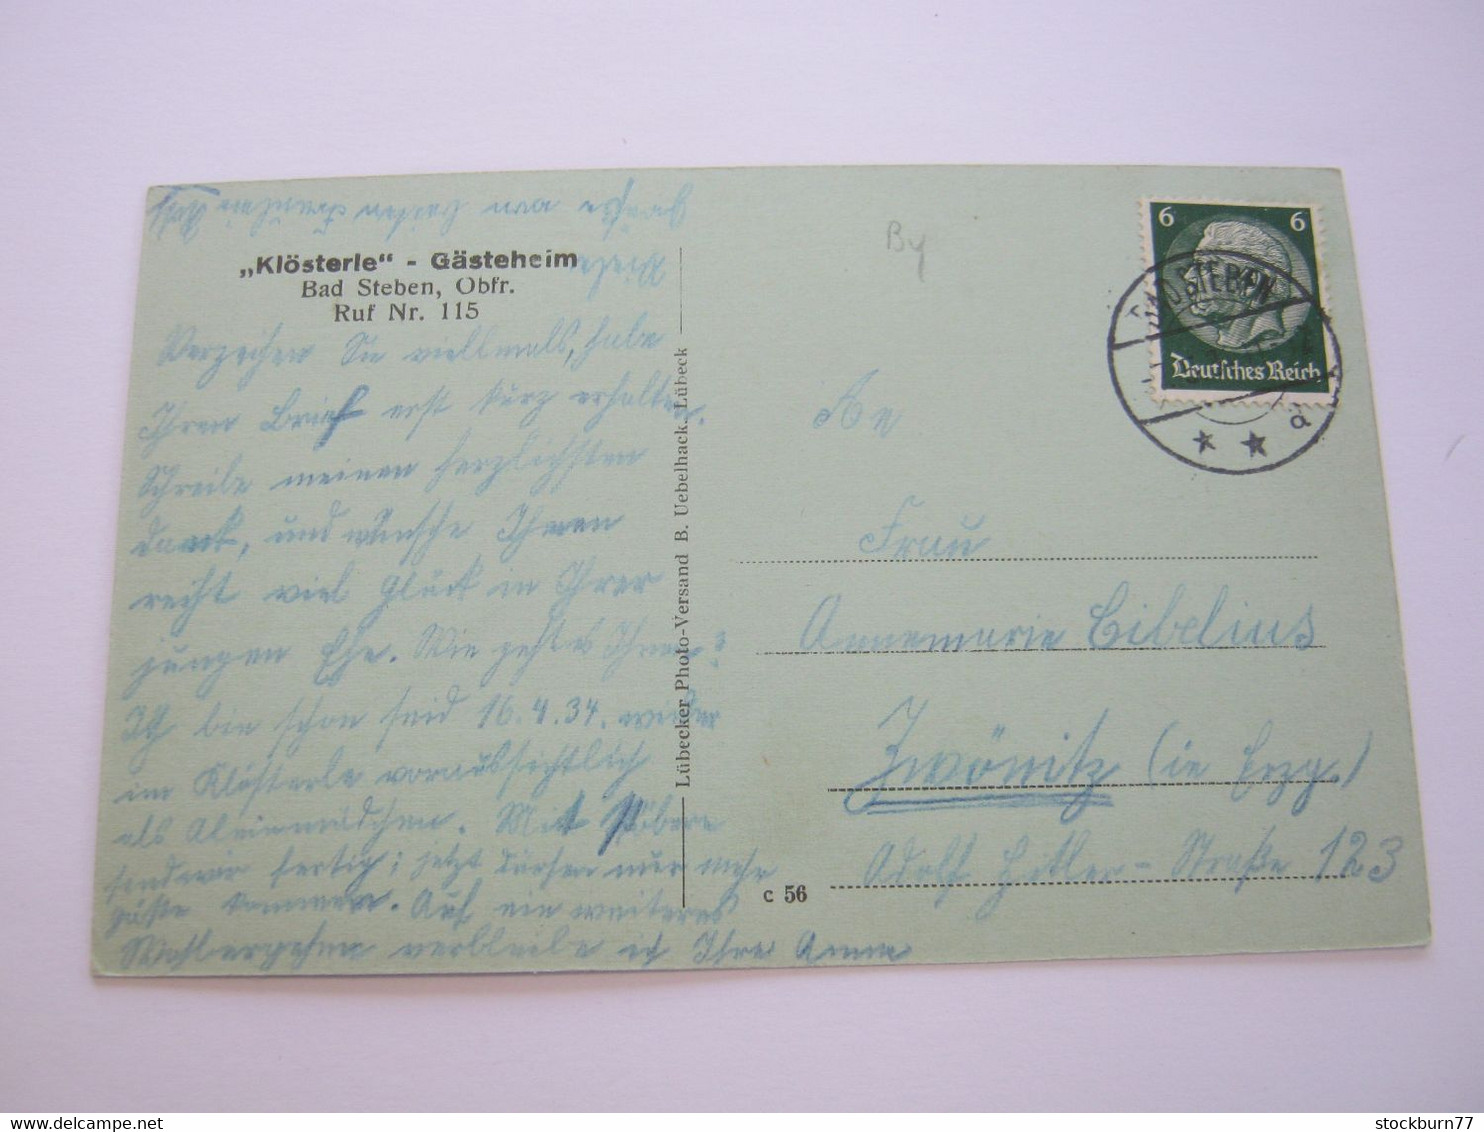 „Klösterle“ - Gästeheim
Bad Steben, Obfr.
Ruf Nr. 115
Verzeihen Sie vielmals, habe
Ihren Brief erst kurz erhalten.
Schreibe meinen herzlichsten
Dank, und wünsche Ihnen
recht viel Glück in Ihrer
jungen Ehe. Wie geht es Ihnen?
Ich bin schon seid 16.4.34. wieder
im Klösterle voraussichtlich
als Aleinmädchen. Mit Stöbern
send wir fertig; jetzt dürfen nur mehr
Gäste kommen. Auf ein weiteres
Wohlergehen verbleibe ich Ihre Anna
Viele
Grüße von beiden Fräulein
Lübecker Photo-Versand B. Uebelhack, Lübeck
c 56
By
6 6
Deutsches Reich
BAD STEBEN
a
An
Frau
Annemarie Cibelius
Zwönitz (in Erzg.)
Adolf Hitler-Straße 123
stockburn77